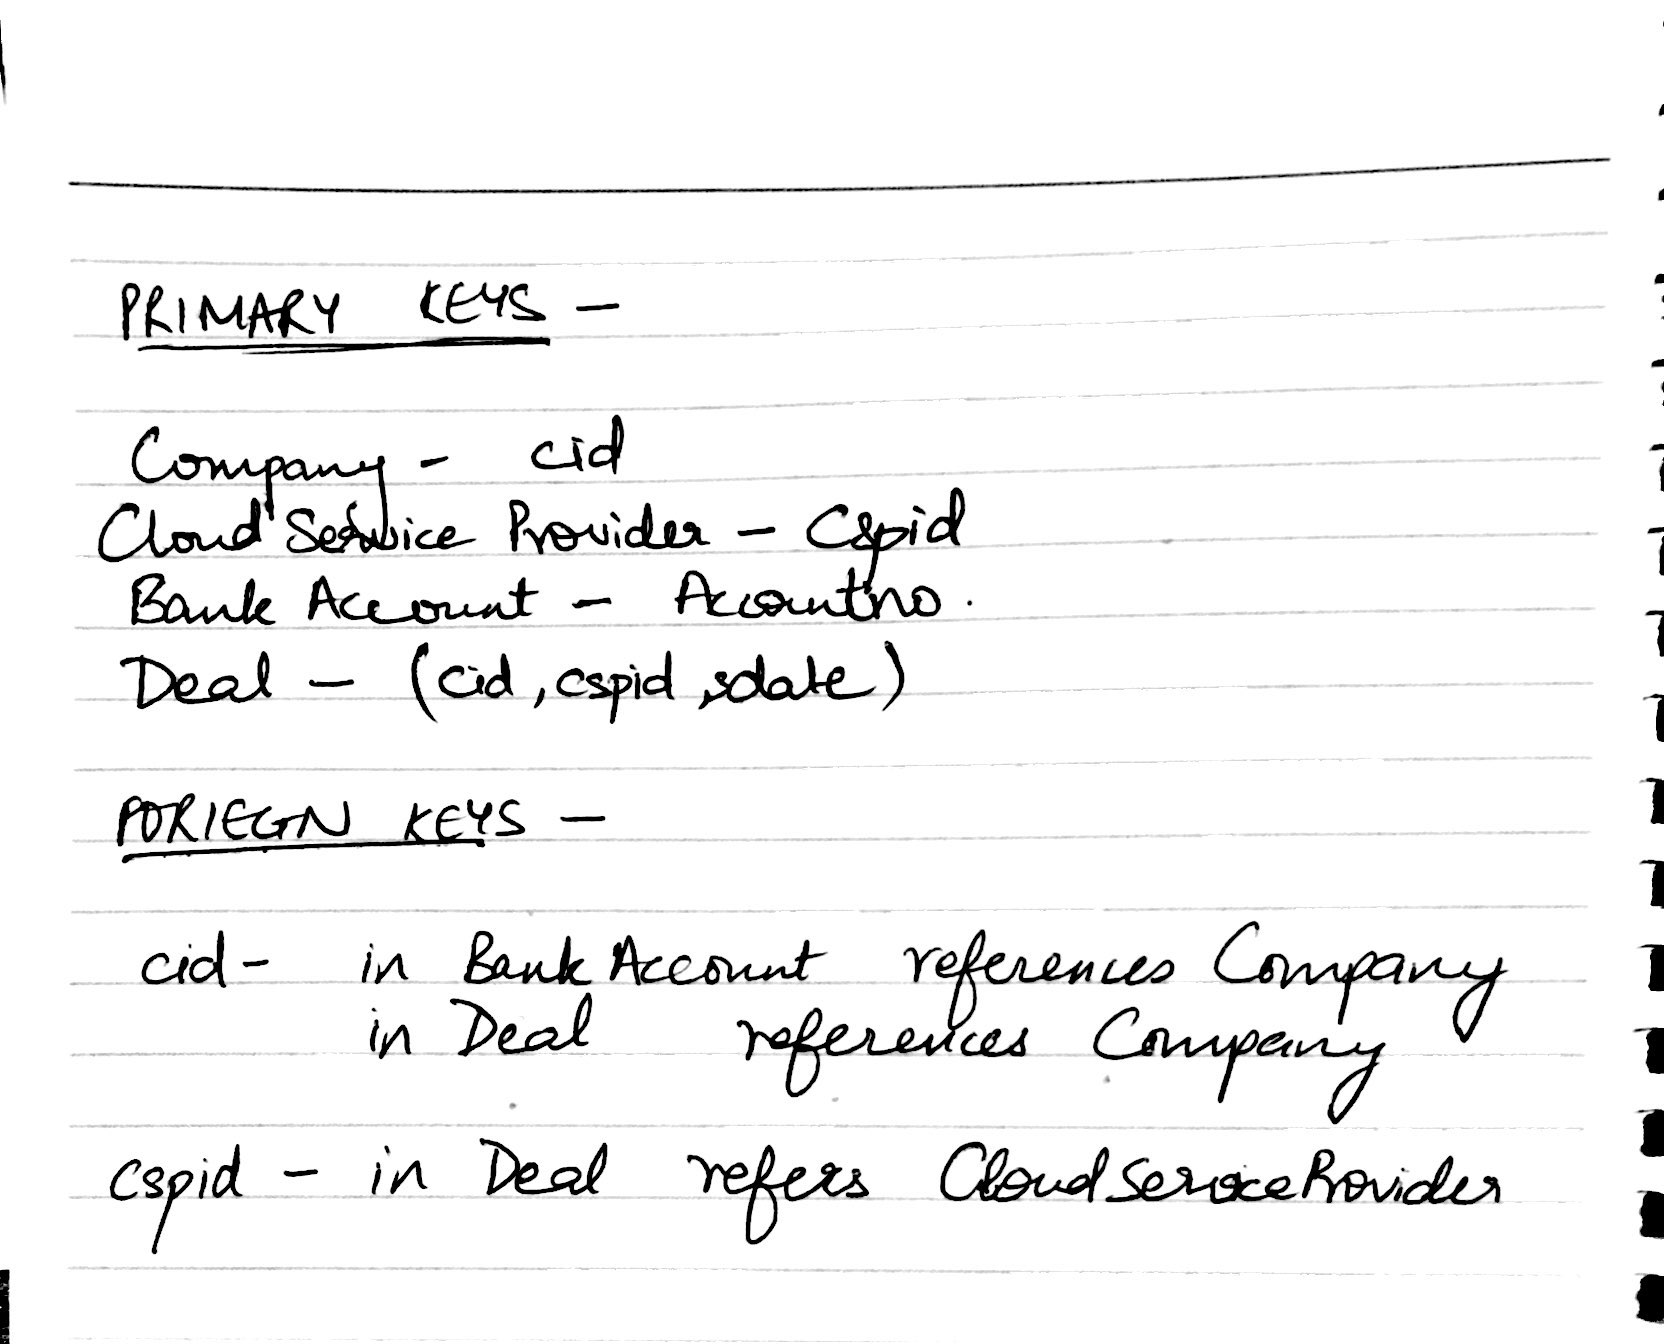 PRIMARY KEYS -
Company - cid
Cloud Service Provider - Cspid
Bank Account - Accountno.
Deal - (cid, cspid, sdate)
FORIEGN KEYS -
cid - in Bank Account references Company
in Deal references Company
cspid - in Deal refers CloudServiceProvider